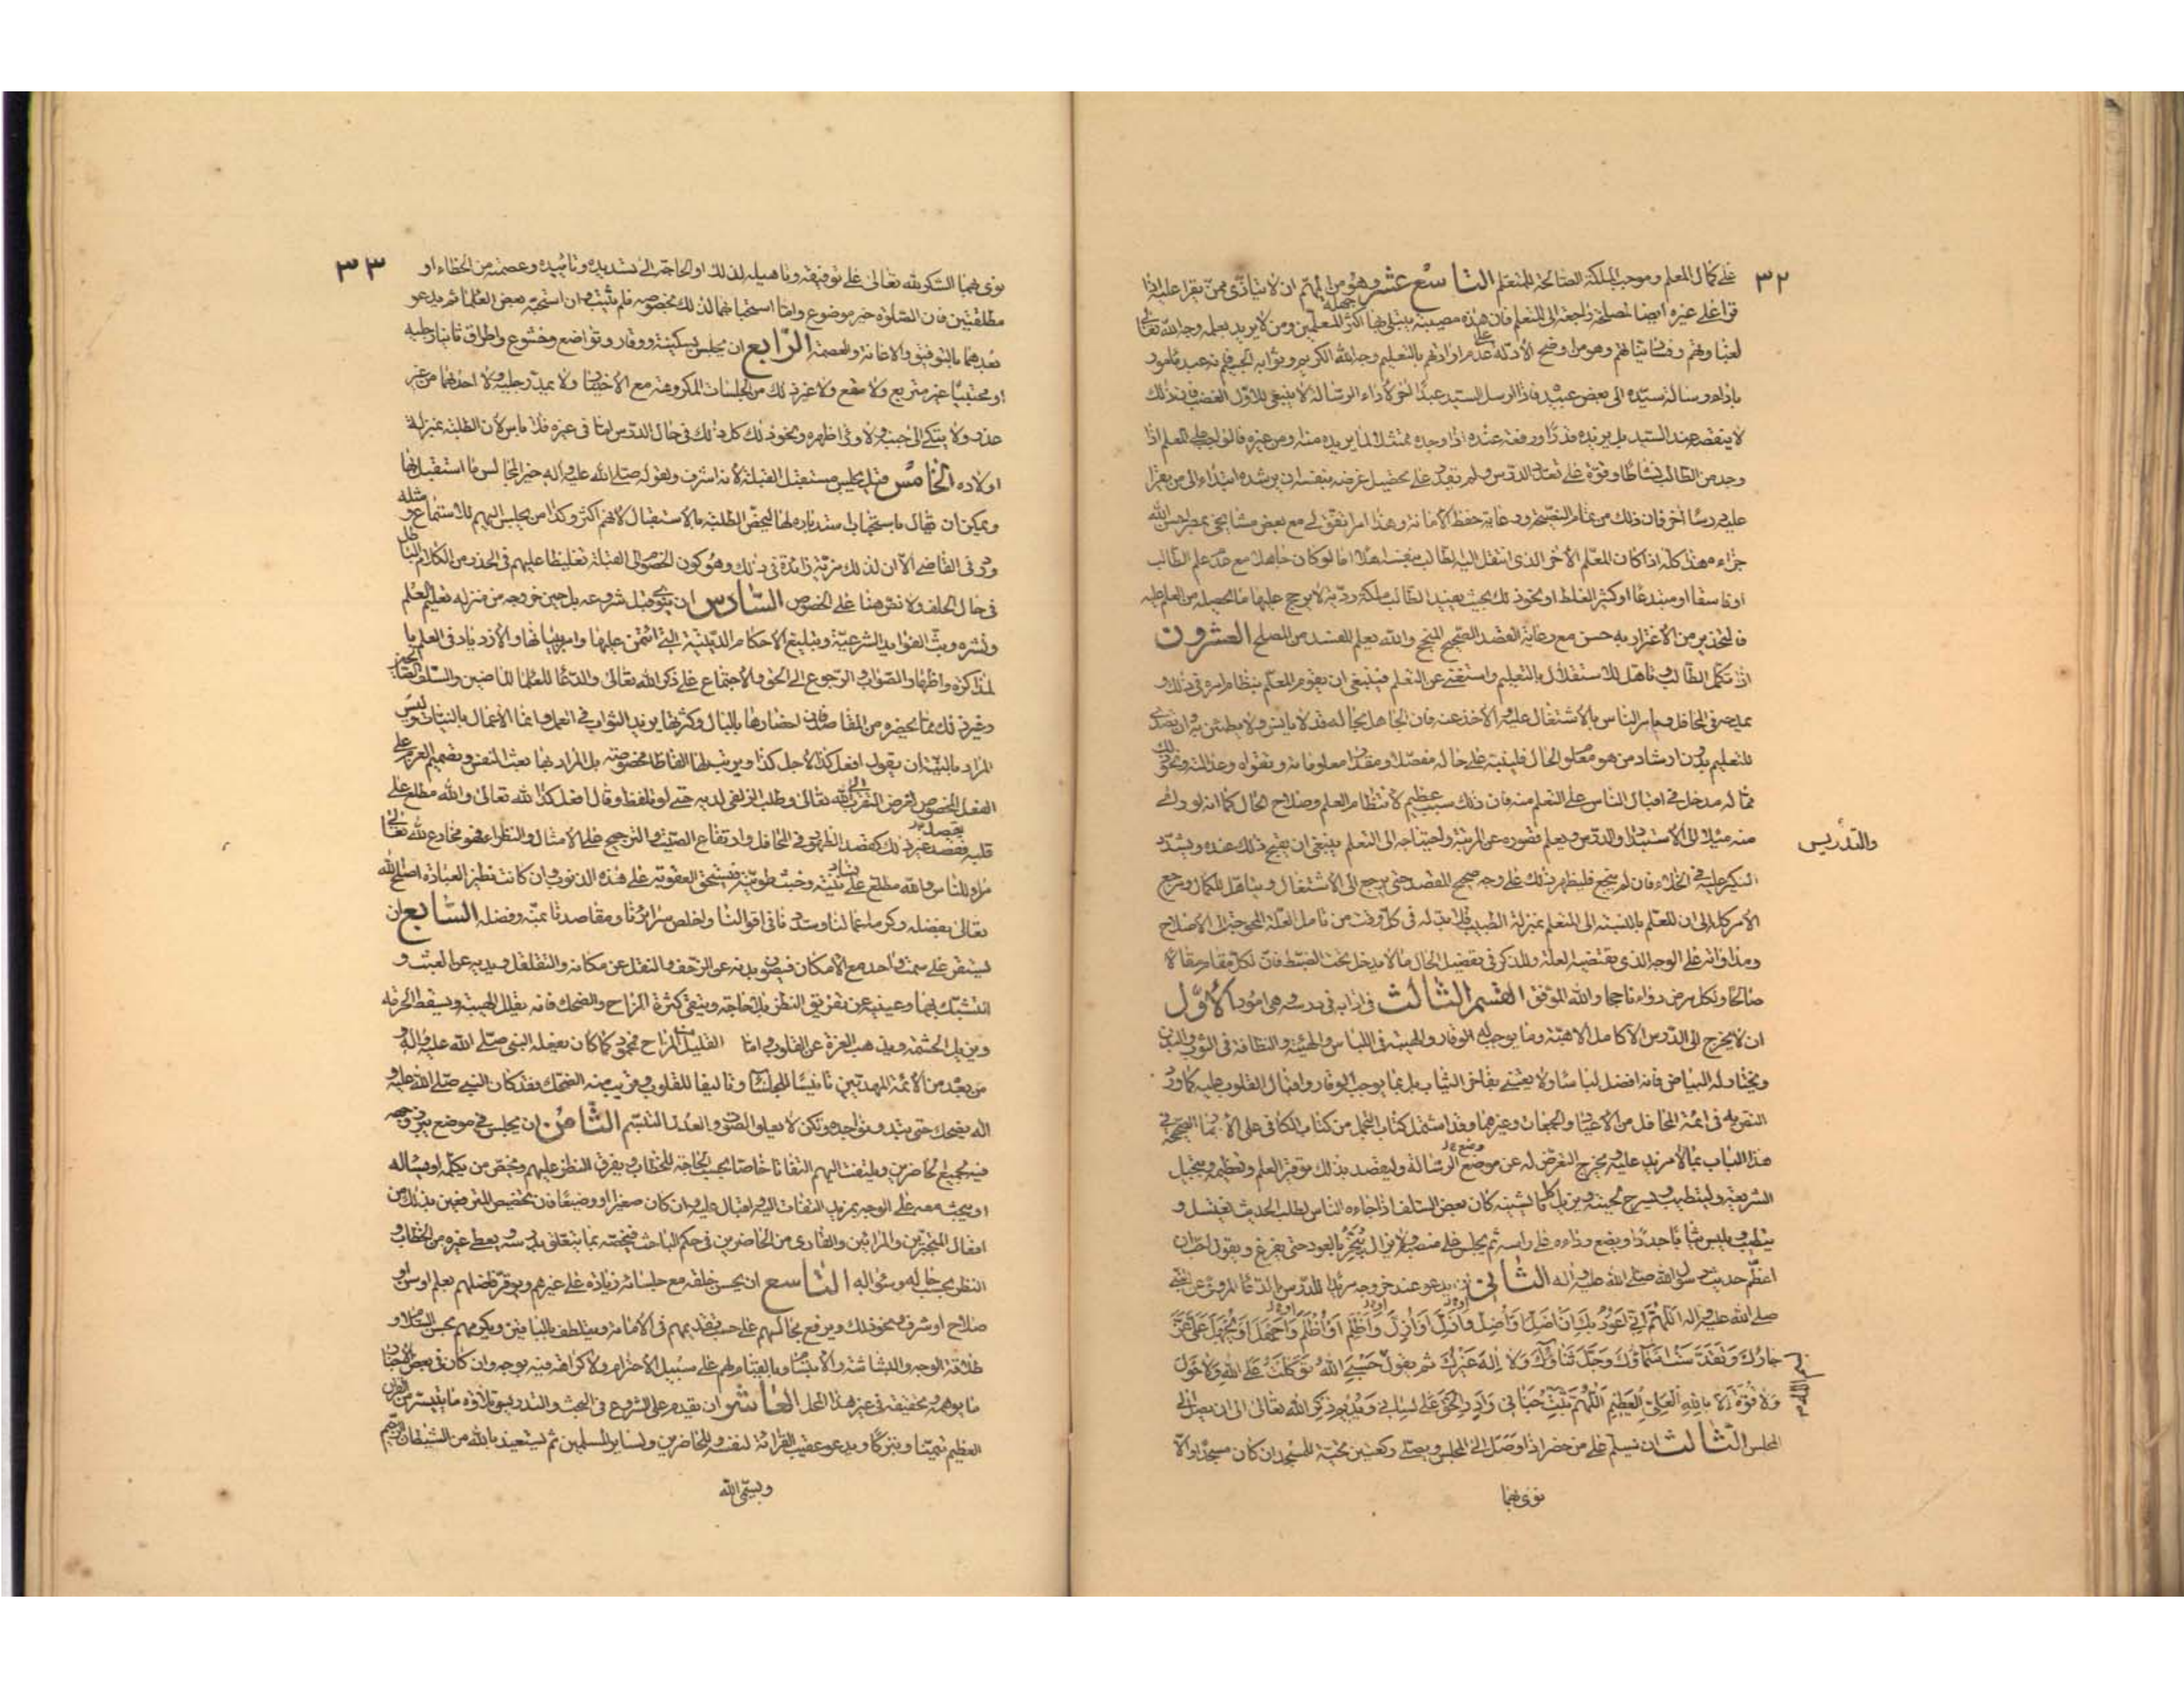 ٣٢
على كمال المعلم وموجب للملكة الصالحة للمتعلم التاسع عشر وهو من المهم ان لا يتاذى ممن يقرا عليه اذا
قرا على غيره ايضا لمصلحة راجعة الى المتعلم فان هذه مصيبة يبتلى بها جهلة المعلمين ومن لا يريد بعلمه وجه الله تعالى
لغباوتهم وفساد نياتهم وهو من اوضح الادلة على عدم ارادتهم بالتعليم وجه الله الكريم وثوابه الجسيم فانه عبد مامور
باداء رسالة سيده الى بعض عبيده فاذا ارسل السيد عبدا اخر لاداء الرسالة لا ينبغى للاول الغضب فان ذلك
لا ينقصه عند السيد بل يزيده قدرا ورفعة عنده اذا وجده ممتثلا لما يريده منه او من غيره فالواجب على المعلم اذا
وجد من الطالب نشاطا وقوة على تعدد الدرس ولم يقدر على تحصيل غرضه بنفسه ان يرشده ابتداء الى من يقرا
عليه درسا اخر فان ذلك من تمام النصيحة ورعاية حفظ الامانة وهذا امر اتفق لى مع بعض مشايخى بمصر احسن الله
جزاءه هذا كله اذا كان المعلم الاخر الذى انتقل اليه الطالب بنفسه اهلا اما لو كان جاهلا مع عدم علم الطالب
او فاسقا او مبتدعا او كثير الغلط او نحو ذلك بحيث يفيد الطالب ملكة ردية لا يرجح عليها ما يحصله من العلم عليه
فالتحذير من الاغترار به حسن مع رعاية القصد الصحيح المنجح والله يعلم المفسد من المصلح العشرون
اذا تكمل الطالب وتاهل للاستقلال بالتعليم واستغنى عن التعلم فينبغى ان يقوم المعلم بنظام امره فى ذلك و
يمدحه فى المحافل ويامر الناس بالاشتغال عليه والاخذ عنه فان الجاهل بحاله قد لا يانس ولا يطمئن به وان تصدى
للتعليم بدون ارشاد من هو معلوم الحال فلينبه على حاله مفصلا ومقدار معلوماته وتقواه وعدالته ونحو ذلك
مما له مدخل فى اقبال الناس على التعلم منه فان ذلك سبب عظيم لانتظام العلم وصلاح الحال كما انه لو راى
منه ميلا الى الاستبداد والتدريس ويعلم قصوره عن المرتبة واحتياجه الى التعلم ينبغى ان يقبح ذلك عنده ويشدد
النكير عليه فى الخلاء فان لم ينجع فليظهر ذلك على وجه صحيح المقصد حتى يرجع الى الاشتغال ويتاهل للكمال ومرجع
الامر كله الى ان المعلم بالنسبة الى المتعلم بمنزلة الطبيب فلا بد له فى كل وقت من تامل العلة المحوجة الى الاصلاح
ومداواته على الوجه الذى يقتضيه العلة وللذكى فى تفصيل الحال ما لا يدخل تحت الضبط فان لكل مقام مقالا
صالحا ولكل مرض دواء ناجحا والله الموفق القسم الثالث فى ادابه فى درسه وهى امور الاول
ان لا يخرج الى الدرس الا كامل الاهبة وما يوجب له الوقار والهيبة فى اللباس والهيئة والنظافة فى الثوب والبدن
ويختار له البياض فانه افضل لباسا ولا يعتنى بفاخر الثياب بل بما يوجب الوقار واقبال القلوب عليه كما ورد
النص به فى ائمة المحافل من الاعياد والجمعات وغيرهما وقد اشتمل كتاب التجمل من كتاب الكافى على الاخبار الصحيحة فى
هذا الباب بما لا مزيد عليه ويخرج التعرض له عن موضوع الرسالة وليقصد بذلك توقير العلم وتعظيمه وتبجيل
الشريعة وليتطيب ويسرح لحيته ويزيل كل ما يشينه كان بعض السلف اذا جاءه الناس لطلب الحديث يغتسل و
يتطيب ويلبس ثيابا جددا ويضع رداءه على راسه ثم يجلس على منصة ولا يزال يتبخر بالعود حتى يفرغ ويقول احب ان
اعظم حديث رسول الله صلى الله عليه واله الثانى ان يدعو عند خروجه مريدا للدرس بالدعاء المروى عن النبى
صلى الله عليه واله اللهم انى اعوذ بك ان اضل او اضل وازل او ازل واظلم او اظلم واجهل او يجهل على عز
جارك وتقدست اسماؤك وجل ثناؤك ولا اله غيرك ثم يقول حسبى الله توكلت على الله ولا حول
ولا قوة الا بالله العلى العظيم اللهم ثبت جنانى وادر الحق على لسانى ويديم ذكر الله تعالى الى ان يصل الى
المجلس الثالث ان يسلم على من حضر اذا وصل الى المجلس ويصلى ركعتين تحية المسجد ان كان مسجدا والا
نوى بهما
والتدريس
بسم الله
٣٣
نوى بهما الشكر لله تعالى على توفيقه وتاهيله لذلك او الحاجة الى تسديده وتاييده وعصمته من الخطاء او
مطلقتين فان الصلوة خير موضوع واما استحبابهما لذلك بخصوصه فلم يثبت وان استحبه بعض العلماء ثم يدعو
بعدهما بالتوفيق والاعانة والعصمة الرابع ان يجلس بسكينة ووقار وتواضع وخشوع واطراق ثانيا رجليه
او محتبيا غير متربع ولا مقع ولا غير ذلك من الجلسات المكروهة مع الاختيار ولا يمد رجليه ولا احدهما من غير
عذر ولا يتكى الى جنبه ولا وراء ظهره ونحو ذلك كل ذلك فى حال الدرس اما فى غيره فلا باس لان الطلبة بمنزلة
اولاده الخامس قيل يجلس مستقبل القبلة لانه اشرف ولقوله صلى الله عليه واله خير المجالس ما استقبل بها
ويمكن ان يقال باستحباب استدباره لها ليخص الطلبة بالاستقبال لانهم اكثر وكذا من يجلس اليهم للاستماع ومثله
ورد فى القاضى الا ان لذلك مزية زائدة فى ذلك وهو كون الخصوم الى القبلة تغليظا عليهم فى الحذر من الكلام الباطل
فى حال الحلف ولا نص هنا على الخصوص السادس ان ينوى قبل شروعه بل حين خروجه من منزله تعليم العلم
ونشره وبث الفوايد الشرعية وتبليغ الاحكام الدينية التى ائتمن عليها وامر ببيانها والازدياد فى العلم با
لمذاكرة واظهار الصواب والرجوع الى الحق والاجتماع على ذكر الله تعالى والدعاء للعلماء الماضين والسلف الصالحين
وغير ذلك مما يحضره من المقاصد فان احضارها بالبال وكثرتها يزيد الثواب فى العمل وانما الاعمال بالنيات وليس
المراد بالنية ان يقول افعل كذا لاجل كذا ويرتب لها الفاظا مخصوصة بل المراد بها بعث النفس وتصميم العزم على
الفعل المخصوص لغرض التقرب الى الله تعالى وطلب الزلفى لديه حتى لو تلفظ وقال افعل كذا لله تعالى والله مطلع على
قلبه يقصد غير ذلك كقصد الظهور فى المحافل وارتفاع الصيت والترجيح على الامثال والنظراء فهو مخادع لله تعالى
مراء للناس والله مطلع على فساد نيته وخبث طويته فيستحق العقوبة على هذه الذنوب وان كانت بمظهر العبادة اصلح الله
تعالى بفضله وكرمه اعمالنا وسددنا فى اقوالنا واخلص سرائرنا ومقاصدنا بمنه وفضله السابع ان
يستقر على سمت واحد مع الامكان فيصون بدنه عن الزحف والتنقل عن مكانه والتقلقل ويديه عن العبث و
التشبيك بهما وعينيه عن تفريق النظر بلا حاجة ويتقى كثرة المزاح والضحك فانه يقلل الهيبة ويسقط الحرمة
ويزيل الحشمة ويذهب العزة عن القلوب واما القليل من المزاح فمحمود كما كان يفعله النبى صلى الله عليه واله و
من بعده من الائمة المهديين تانيسا للجلساء وتاليفا للقلوب وقريب منه الضحك فقد كان النبى صلى الله عليه و
اله يضحك حتى يبدو نواجذه ولكن لا يعلو الصوت والعدل التبسم الثامن ان يجلس فى موضع يبرز وجهه
فيه لجميع الحاضرين ويلتفت اليهم التفاتا خاصا بحسب الحاجة للخطاب ويفرق النظر عليهم ويخص من يكلمه او يساله
او يبحث معه على الوجه بمزيد التفات اليه واقبال عليه وان كان صغيرا او وضيعا فان تخصيص المترفعين بذلك من
افعال المتجبرين والمرائين والقارى من الحاضرين فى حكم الباحث فيخصه بما يتعلق بدرسه ويعطى غيره من الخطاب و
النظر بحسب حاله وسؤاله التاسع ان يحسن خلقه مع جلسائه زيادة على غيرهم ويوقر فاضلهم بعلم او سن او
صلاح او شرف ونحو ذلك ويرفع مجالسهم على حسب تقديمهم فى الامامة ويتلطف بالباقين ويكرمهم بحسن السلام و
طلاقة الوجه والبشاشة والابتسام وبالقيام لهم على سبيل الاحترام ولا كراهة فيه بوجه وان كان فى بعض الاخبار
ما يوهمه وتحقيقه فى غير هذا المحل العاشر ان يقدم على الشروع فى البحث والتدريس تلاوة ما يتيسر من القران
العظيم تيمنا وتبركا ويدعو عقيب القراءة لنفسه وللحاضرين ولساير المسلمين ثم يستعيذ بالله من الشيطان الرجيم
ويسمى الله